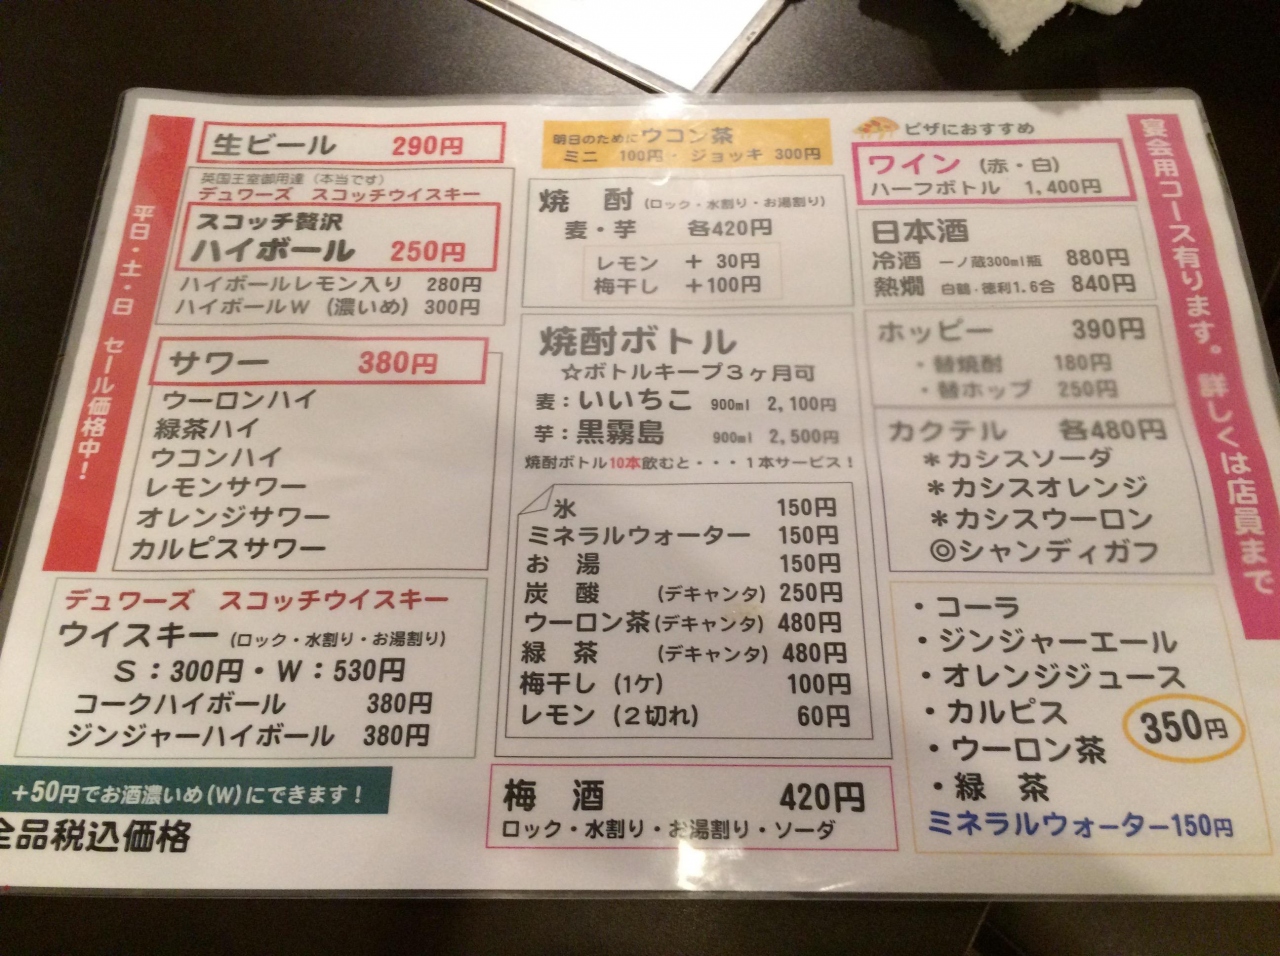 平日・土・日 セール価格中!
生ビール 290円
英国王室御用達(本当です)
デュワーズ スコッチウイスキー
スコッチ贅沢
ハイボール 250円
ハイボールレモン入り 280円
ハイボールW (濃いめ) 300円
サワー 380円
ウーロンハイ
緑茶ハイ
ウコンハイ
レモンサワー
オレンジサワー
カルピスサワー
デュワーズ スコッチウイスキー
ウイスキー (ロック・水割り・お湯割り)
S:300円・W:530円
コークハイボール 380円
ジンジャーハイボール 380円
+50円でお酒濃いめ(W)にできます!
全品税込価格
明日のためにウコン茶
ミニ 100円・ジョッキ 300円
焼 酎 (ロック・水割り・お湯割り)
麦・芋 各420円
レモン + 30円
梅干し +100円
焼酎ボトル
☆ボトルキープ3ヶ月可
麦:いいちこ 900ml 2,100円
芋:黒霧島 900ml 2,500円
焼酎ボトル10本飲むと・・・1本サービス!
氷 150円
ミネラルウォーター 150円
お 湯 150円
炭 酸 (デキャンタ) 250円
ウーロン茶(デキャンタ) 480円
緑 茶 (デキャンタ) 480円
梅干し (1ケ) 100円
レモン (2切れ) 60円
梅 酒 420円
ロック・水割り・お湯割り・ソーダ
ピザにおすすめ
ワイン (赤・白)
ハーフボトル 1,400円
日本酒
冷酒 一ノ蔵300ml瓶 880円
熱燗 白鶴・徳利1.6合 840円
ホッピー 390円
・替焼酎 180円
・替ホップ 250円
カクテル 各480円
*カシスソーダ
*カシスオレンジ
*カシスウーロン
◎シャンディガフ
・コーラ
・ジンジャーエール
・オレンジジュース
・カルピス
・ウーロン茶
・緑 茶
350円
ミネラルウォーター150円
宴会用コース有ります。詳しくは店員まで